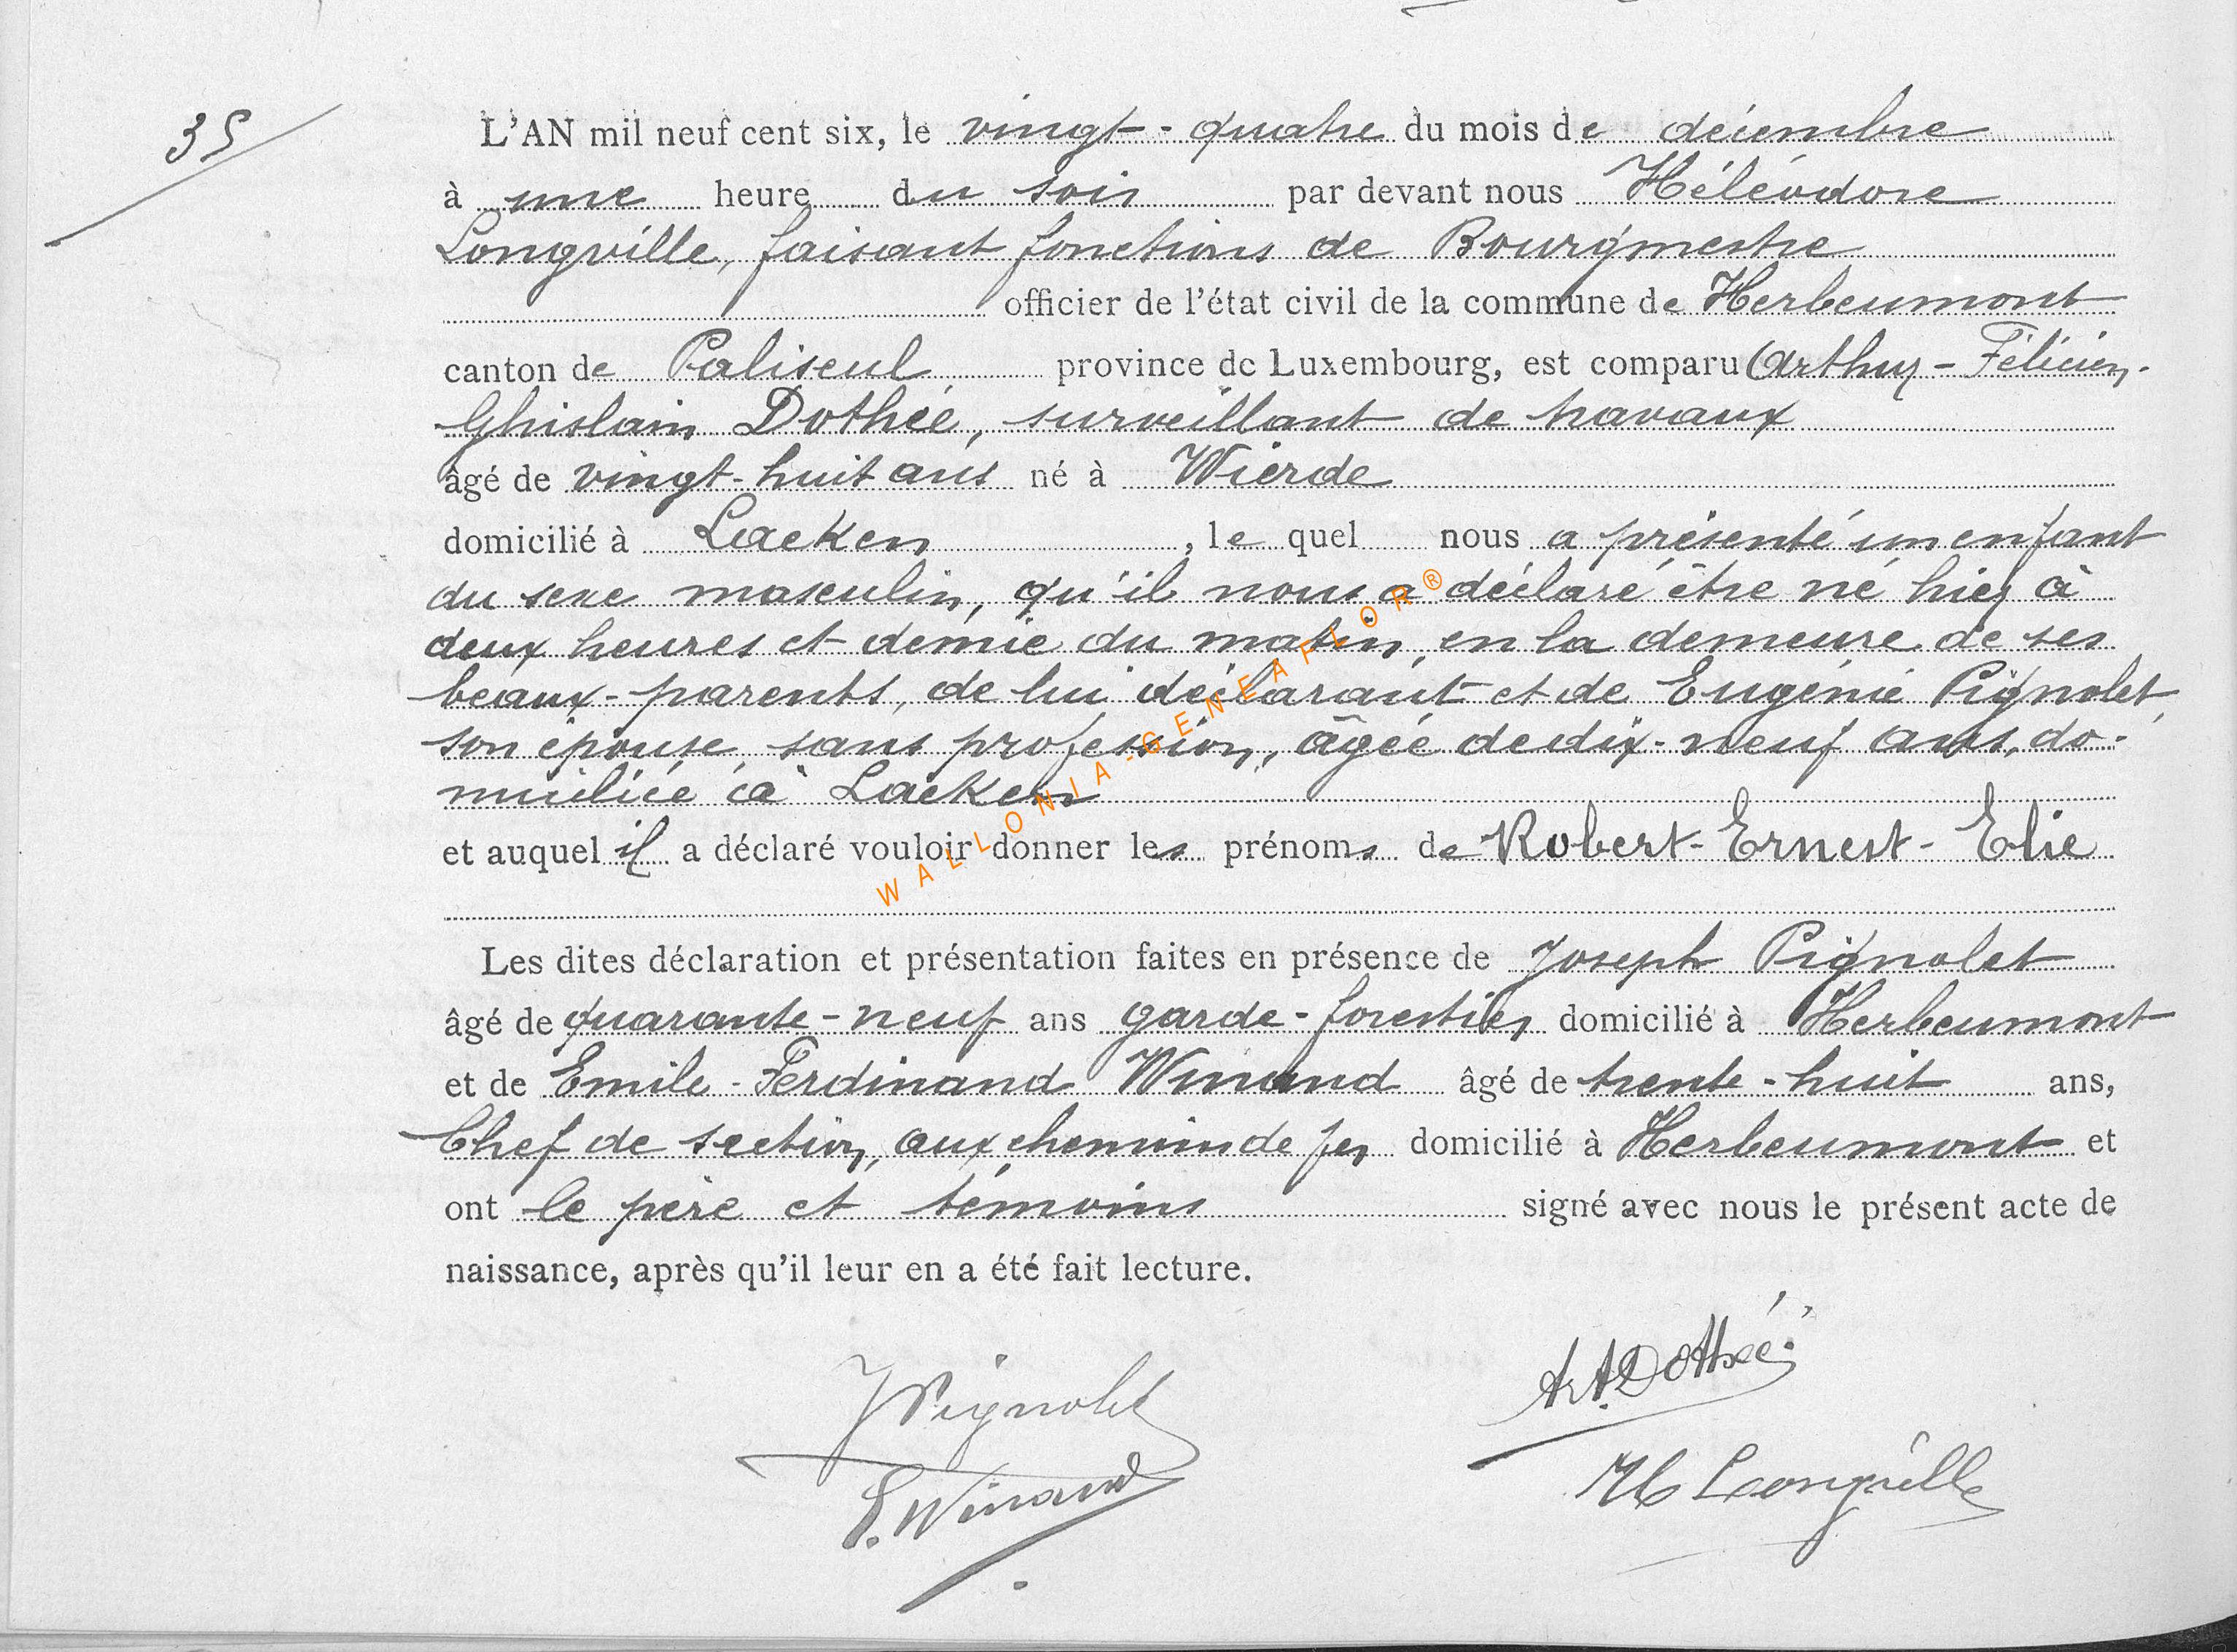 35
L'AN mil neuf cent six, le vingt-quatre du mois de décembre
à une heure du soir par devant nous Héléodore
Longville, faisant fonctions de Bourgmestre
officier de l'état civil de la commune de Herbeumont
canton de Paliseul province de Luxembourg, est comparu Arthur-Félicien-
Ghislain Dothée, surveillant de travaux
âgé de vingt-huit ans né à Wierde
domicilié à Laeken, le quel nous a présenté un enfant
du sexe masculin, qu'il nous a déclaré être né hier à
deux heures et demie du matin, en la demeure de ses
beaux-parents, de lui déclarant et de Eugénie Pignolet,
son épouse, sans profession, âgée de dix-neuf ans, do-
miciliée à Laeken
et auquel il a déclaré vouloir donner les prénoms de Robert-Ernest-Elie
Les dites déclaration et présentation faites en présence de Joseph Pignolet
âgé de quarante-neuf ans garde-forestier domicilié à Herbeumont
et de Emile-Ferdinand Winand âgé de trente-huit ans,
Chef de section, aux chemin de fer domicilié à Herbeumont et
ont le père et témoins signé avec nous le présent acte de
naissance, après qu'il leur en a été fait lecture.
Art. Dothée
J Pignolet
H Longville
E. Winand
WALLONIA-GENEAFLOR®